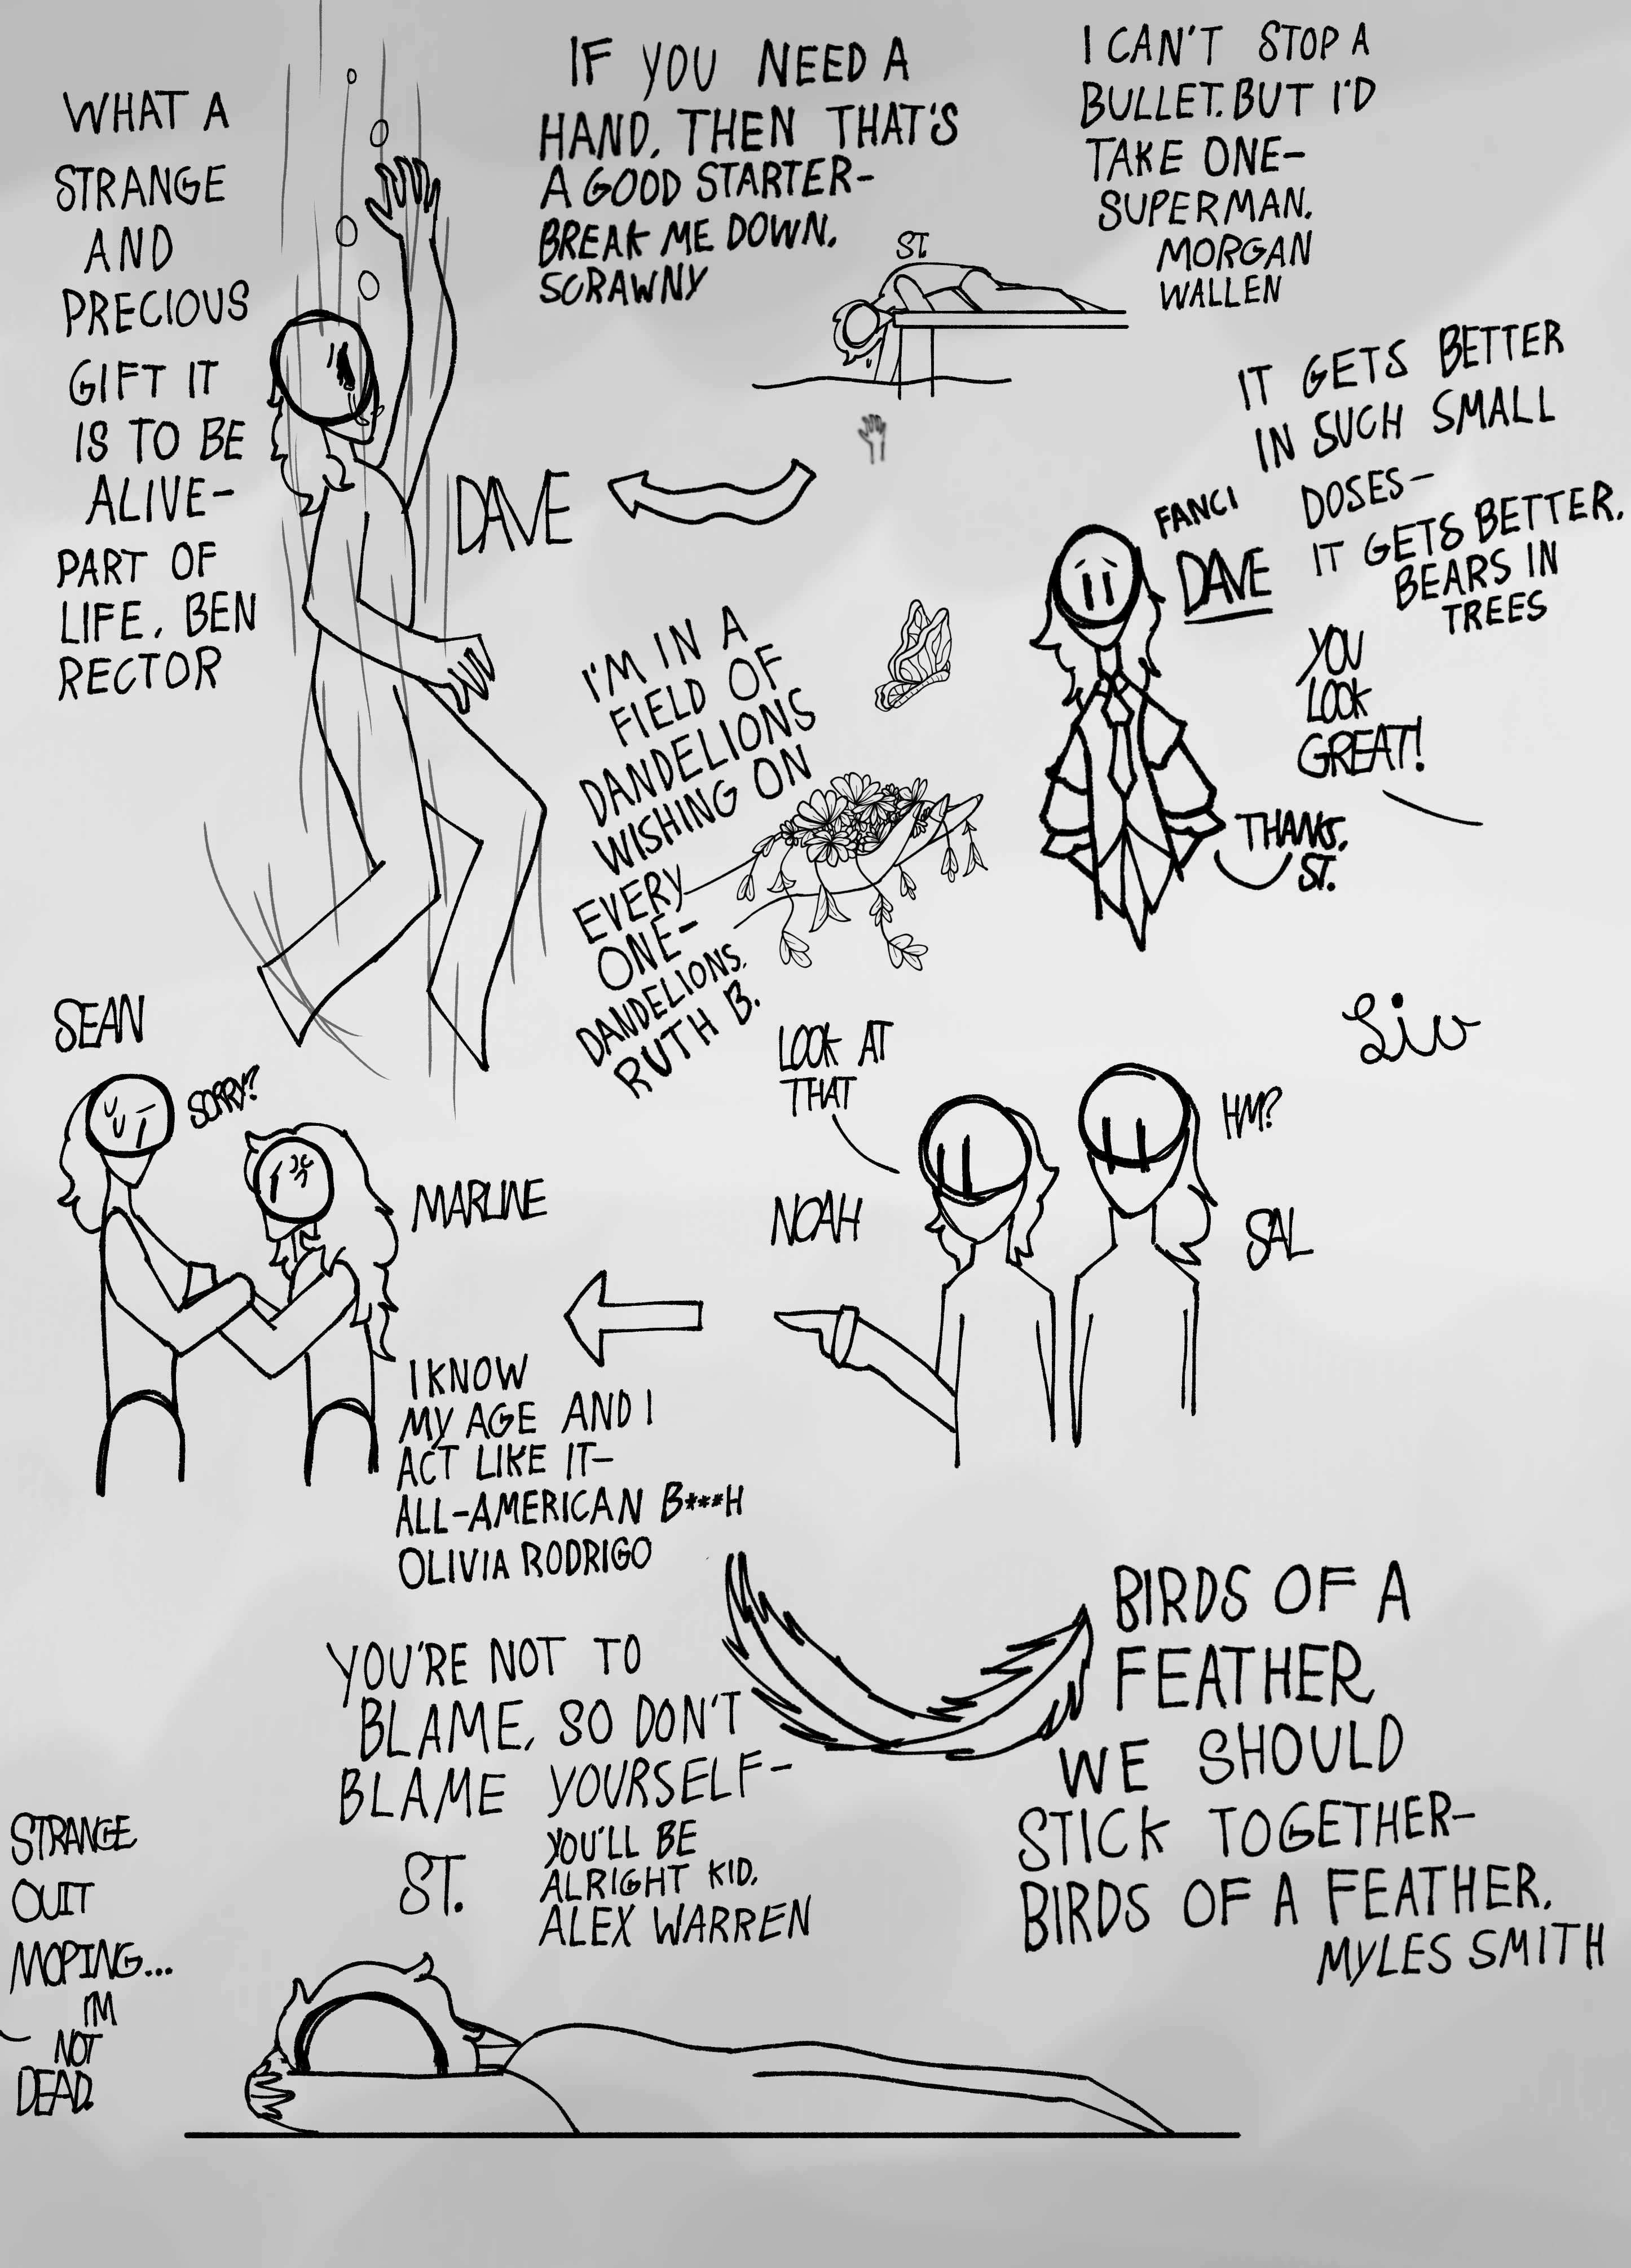 WHAT A
STRANGE
AND
PRECIOUS
GIFT IT
IS TO BE
ALIVE-
PART OF
LIFE, BEN
RECTOR
IF YOU NEED A
HAND, THEN THAT'S
A GOOD STARTER-
BREAK ME DOWN,
SCRAWNY
I CAN'T STOP A
BULLET. BUT I'D
TAKE ONE-
SUPERMAN,
MORGAN
WALLEN
ST.
DAVE
IT GETS BETTER
IN SUCH SMALL
DOSES-
IT GETS BETTER,
BEARS IN
TREES
FANCI
DAVE
YOU
LOOK
GREAT!
THANKS,
ST.
I'M IN A
FIELD OF
DANDELIONS
WISHING ON
EVERY
ONE-
DANDELIONS,
RUTH B.
Liv
SEAN
SORRY?
MARLINE
LOOK AT
THAT
NOAH
HM?
SAL
I KNOW
MY AGE AND I
ACT LIKE IT-
ALL-AMERICAN B***H
OLIVIA RODRIGO
YOU'RE NOT TO
BLAME, SO DON'T
BLAME YOURSELF-
YOU'LL BE
ALRIGHT KID,
ALEX WARREN
ST.
BIRDS OF A
FEATHER
WE SHOULD
STICK TOGETHER-
BIRDS OF A FEATHER,
MYLES SMITH
STRANGE
QUIT
MOPING...
I'M
NOT
DEAD.